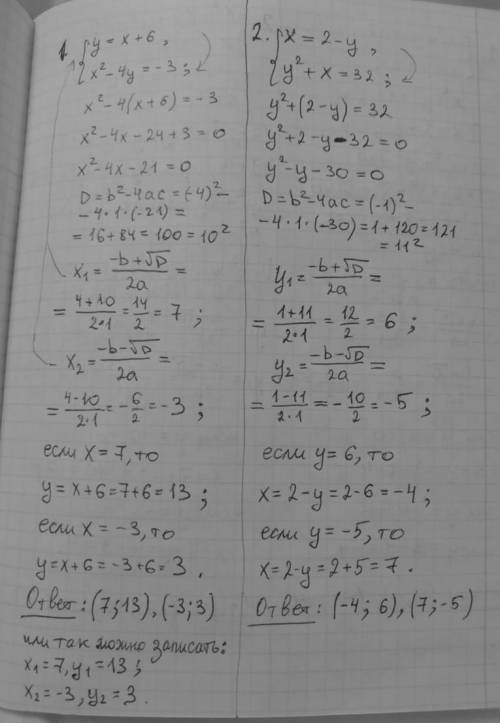 1. { y = x + 6 ,
x² - 4y = -3 ;
x² - 4(x + 6) = -3
x² - 4x - 24 + 3 = 0
x² - 4x - 21 = 0
D = b² - 4ac = (-4)² -
- 4 · 1 · (-21) =
= 16 + 84 = 100 = 10²
x₁ = (-b + √D)/2a =
= (4 + 10)/(2·1) = 14/2 = 7 ;
x₂ = (-b - √D)/2a =
= (4 - 10)/(2·1) = -6/2 = -3 ;
если x = 7, то
y = x + 6 = 7 + 6 = 13 ;
если x = -3, то
y = x + 6 = -3 + 6 = 3 .
Ответ : (7; 13), (-3; 3)
или так можно записать:
x₁ = 7, y₁ = 13 ;
x₂ = -3, y₂ = 3 .
2. { x = 2 - y ,
y² + x = 32 ;
y² + (2 - y) = 32
y² + 2 - y - 32 = 0
y² - y - 30 = 0
D = b² - 4ac = (-1)² -
- 4 · 1 · (-30) = 1 + 120 = 121
= 11²
y₁ = (-b + √D)/2a =
= (1 + 11)/(2·1) = 12/2 = 6 ;
y₂ = (-b - √D)/2a =
= (1 - 11)/(2·1) = -10/2 = -5 ;
если y = 6, то
x = 2 - y = 2 - 6 = -4 ;
если y = -5, то
x = 2 - y = 2 + 5 = 7 .
Ответ : (-4; 6), (7; -5)